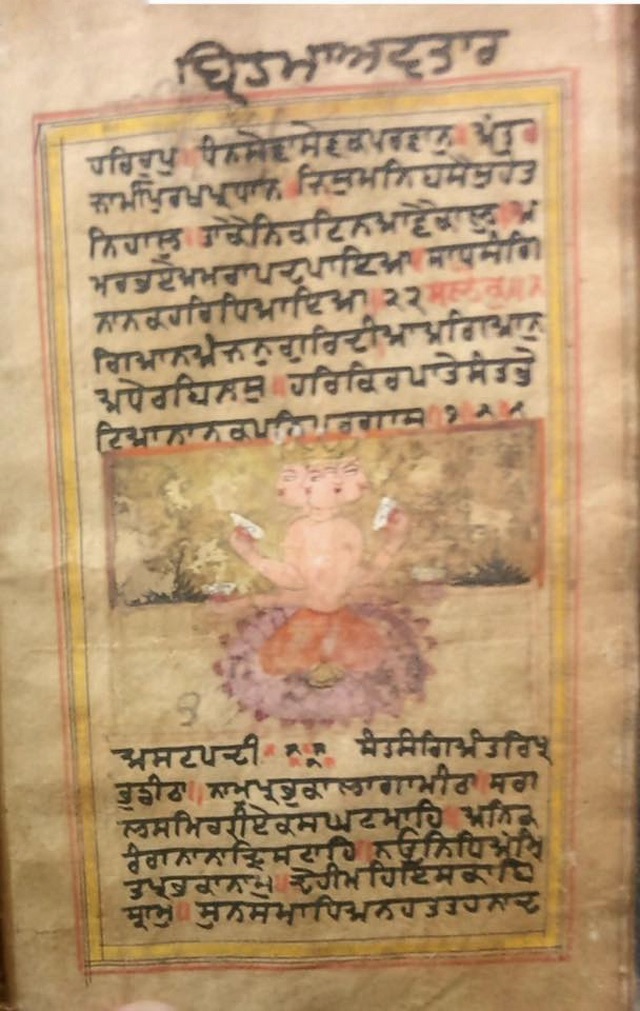 ਬ੍ਰਿਹਮਾ ਅਵਤਾਰ
ਹਰਿ ਰੂਪੁ ॥ ਧੰਨ ਸੇਵਾ ਸੇਵਕ ਪਰਵਾਨੁ ॥ ਅੰਤਰ
ਜਾਮੀ ਪੁਰਖ ਪ੍ਰਧਾਨ ॥ ਜਿਸੁ ਮਨਿ ਬਸੈ ਸੁ ਹੋਤ
ਨਿਹਾਲੁ ॥ ਤਾ ਕੈ ਨਿਕਟਿ ਨ ਆਵੈ ਕਾਲੁ ॥ ਅ
ਮਰ ਭਏ ਅਮਰਾ ਪਦੁ ਪਾਇਆ ॥ ਸਾਧ ਸੰਗਿ
ਨਾਨਕ ਹਰਿ ਧਿਆਇਆ ॥ ੨੨ ਸਲੋਕੁ ॥
ਗਿਆਨ ਅੰਜਨੁ ਗੁਰਿ ਦੀਆ ਅਗਿਆਨੁ
ਅੰਧੇਰ ਬਿਨਾਸੁ ॥ ਹਰਿ ਕਿਰਪਾ ਤੇ ਸੰਤ ਭੇ
ਟਿਆ ਨਾਨਕ ਮਨਿ ਪਰਗਾਸ ॥ ੧
ਅਸਟਪਦੀ ॥ ਸੰਤ ਸੰਗਿ ਅੰਤਰਿ ਪ੍ਰ
ਭੁ ਡੀਠਾ ॥ ਨਾਮੁ ਪ੍ਰਭੂ ਕਾ ਲਾਗਾ ਮੀਠਾ ॥ ਸਗ
ਲ ਸਮਿਗ੍ਰੀ ਏਕਸ ਘਟ ਮਾਹਿ ॥ ਅਨਿਕ
ਰੰਗ ਨਾਨਾ ਦ੍ਰਿਸਟਾਹਿ ॥ ਨਉ ਨਿਧਿ ਅੰਮ੍ਰਿ
ਤੁ ਪ੍ਰਭ ਕਾ ਨਾਮੁ ॥ ਦੇਹੀ ਮਹਿ ਇਸ ਕਾ ਬਿ
ਸ੍ਰਾਮੁ ॥ ਸੁਨ ਸਮਾਧਿ ਅਨਹਤ ਤਹ ਨਾਦ